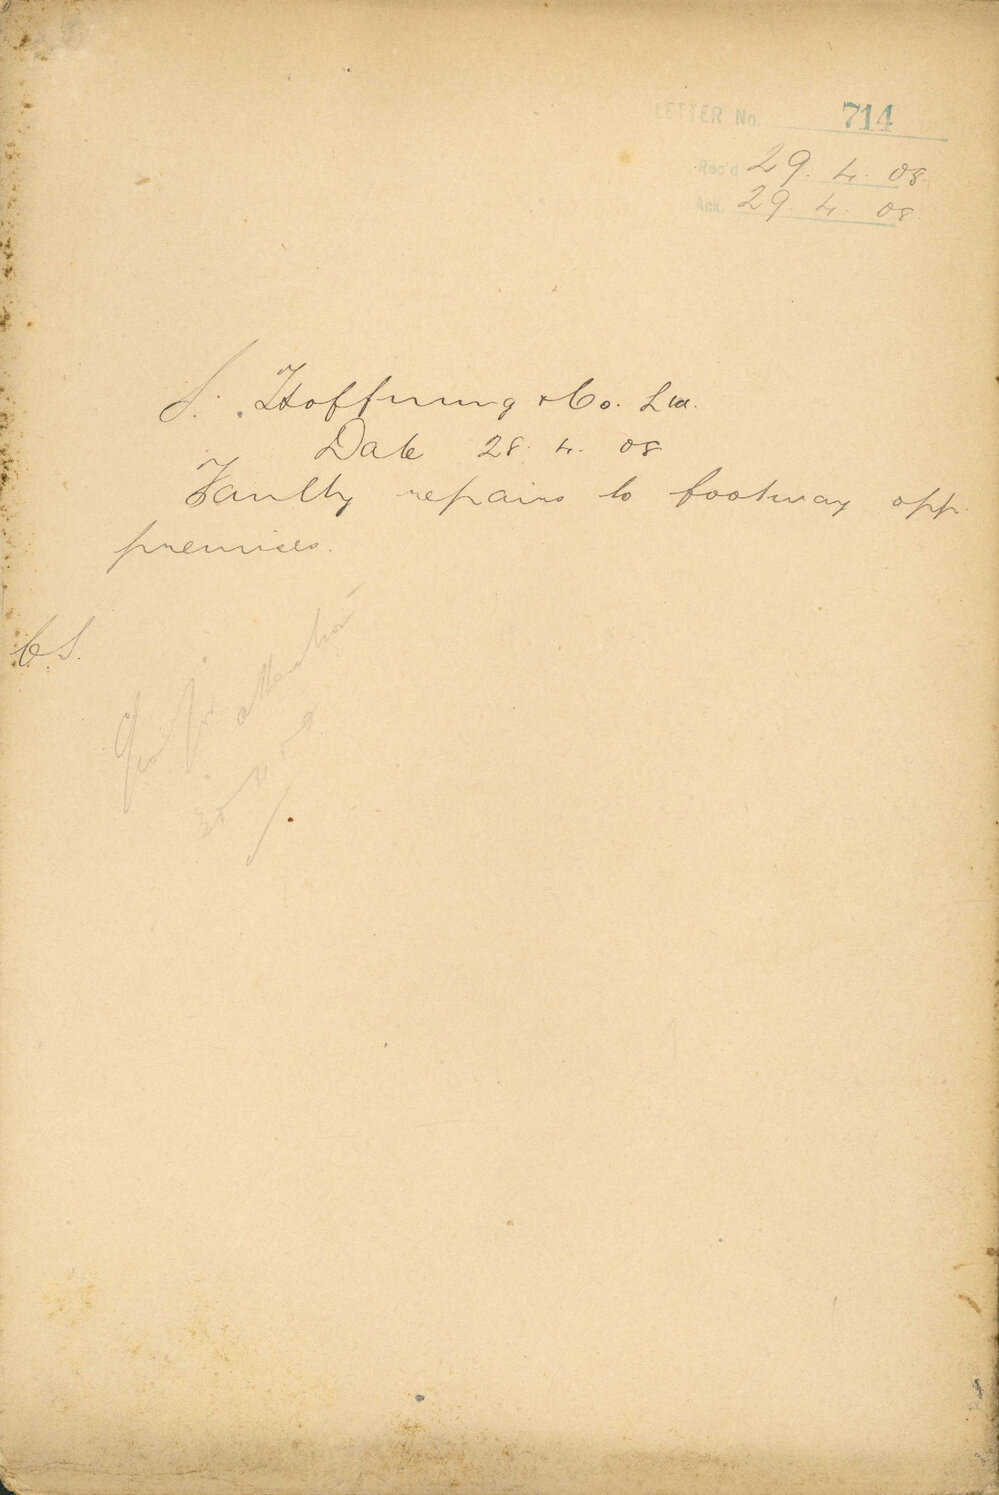 LETTER No. 714
Rec'd 29. 4. 08.
Ack. 29. 4. 08.
S. Hoffnung & Co. Ltd.
Date 28. 4. 08
Faulty repairs to footway opp.
premises.
C.S.
for attention